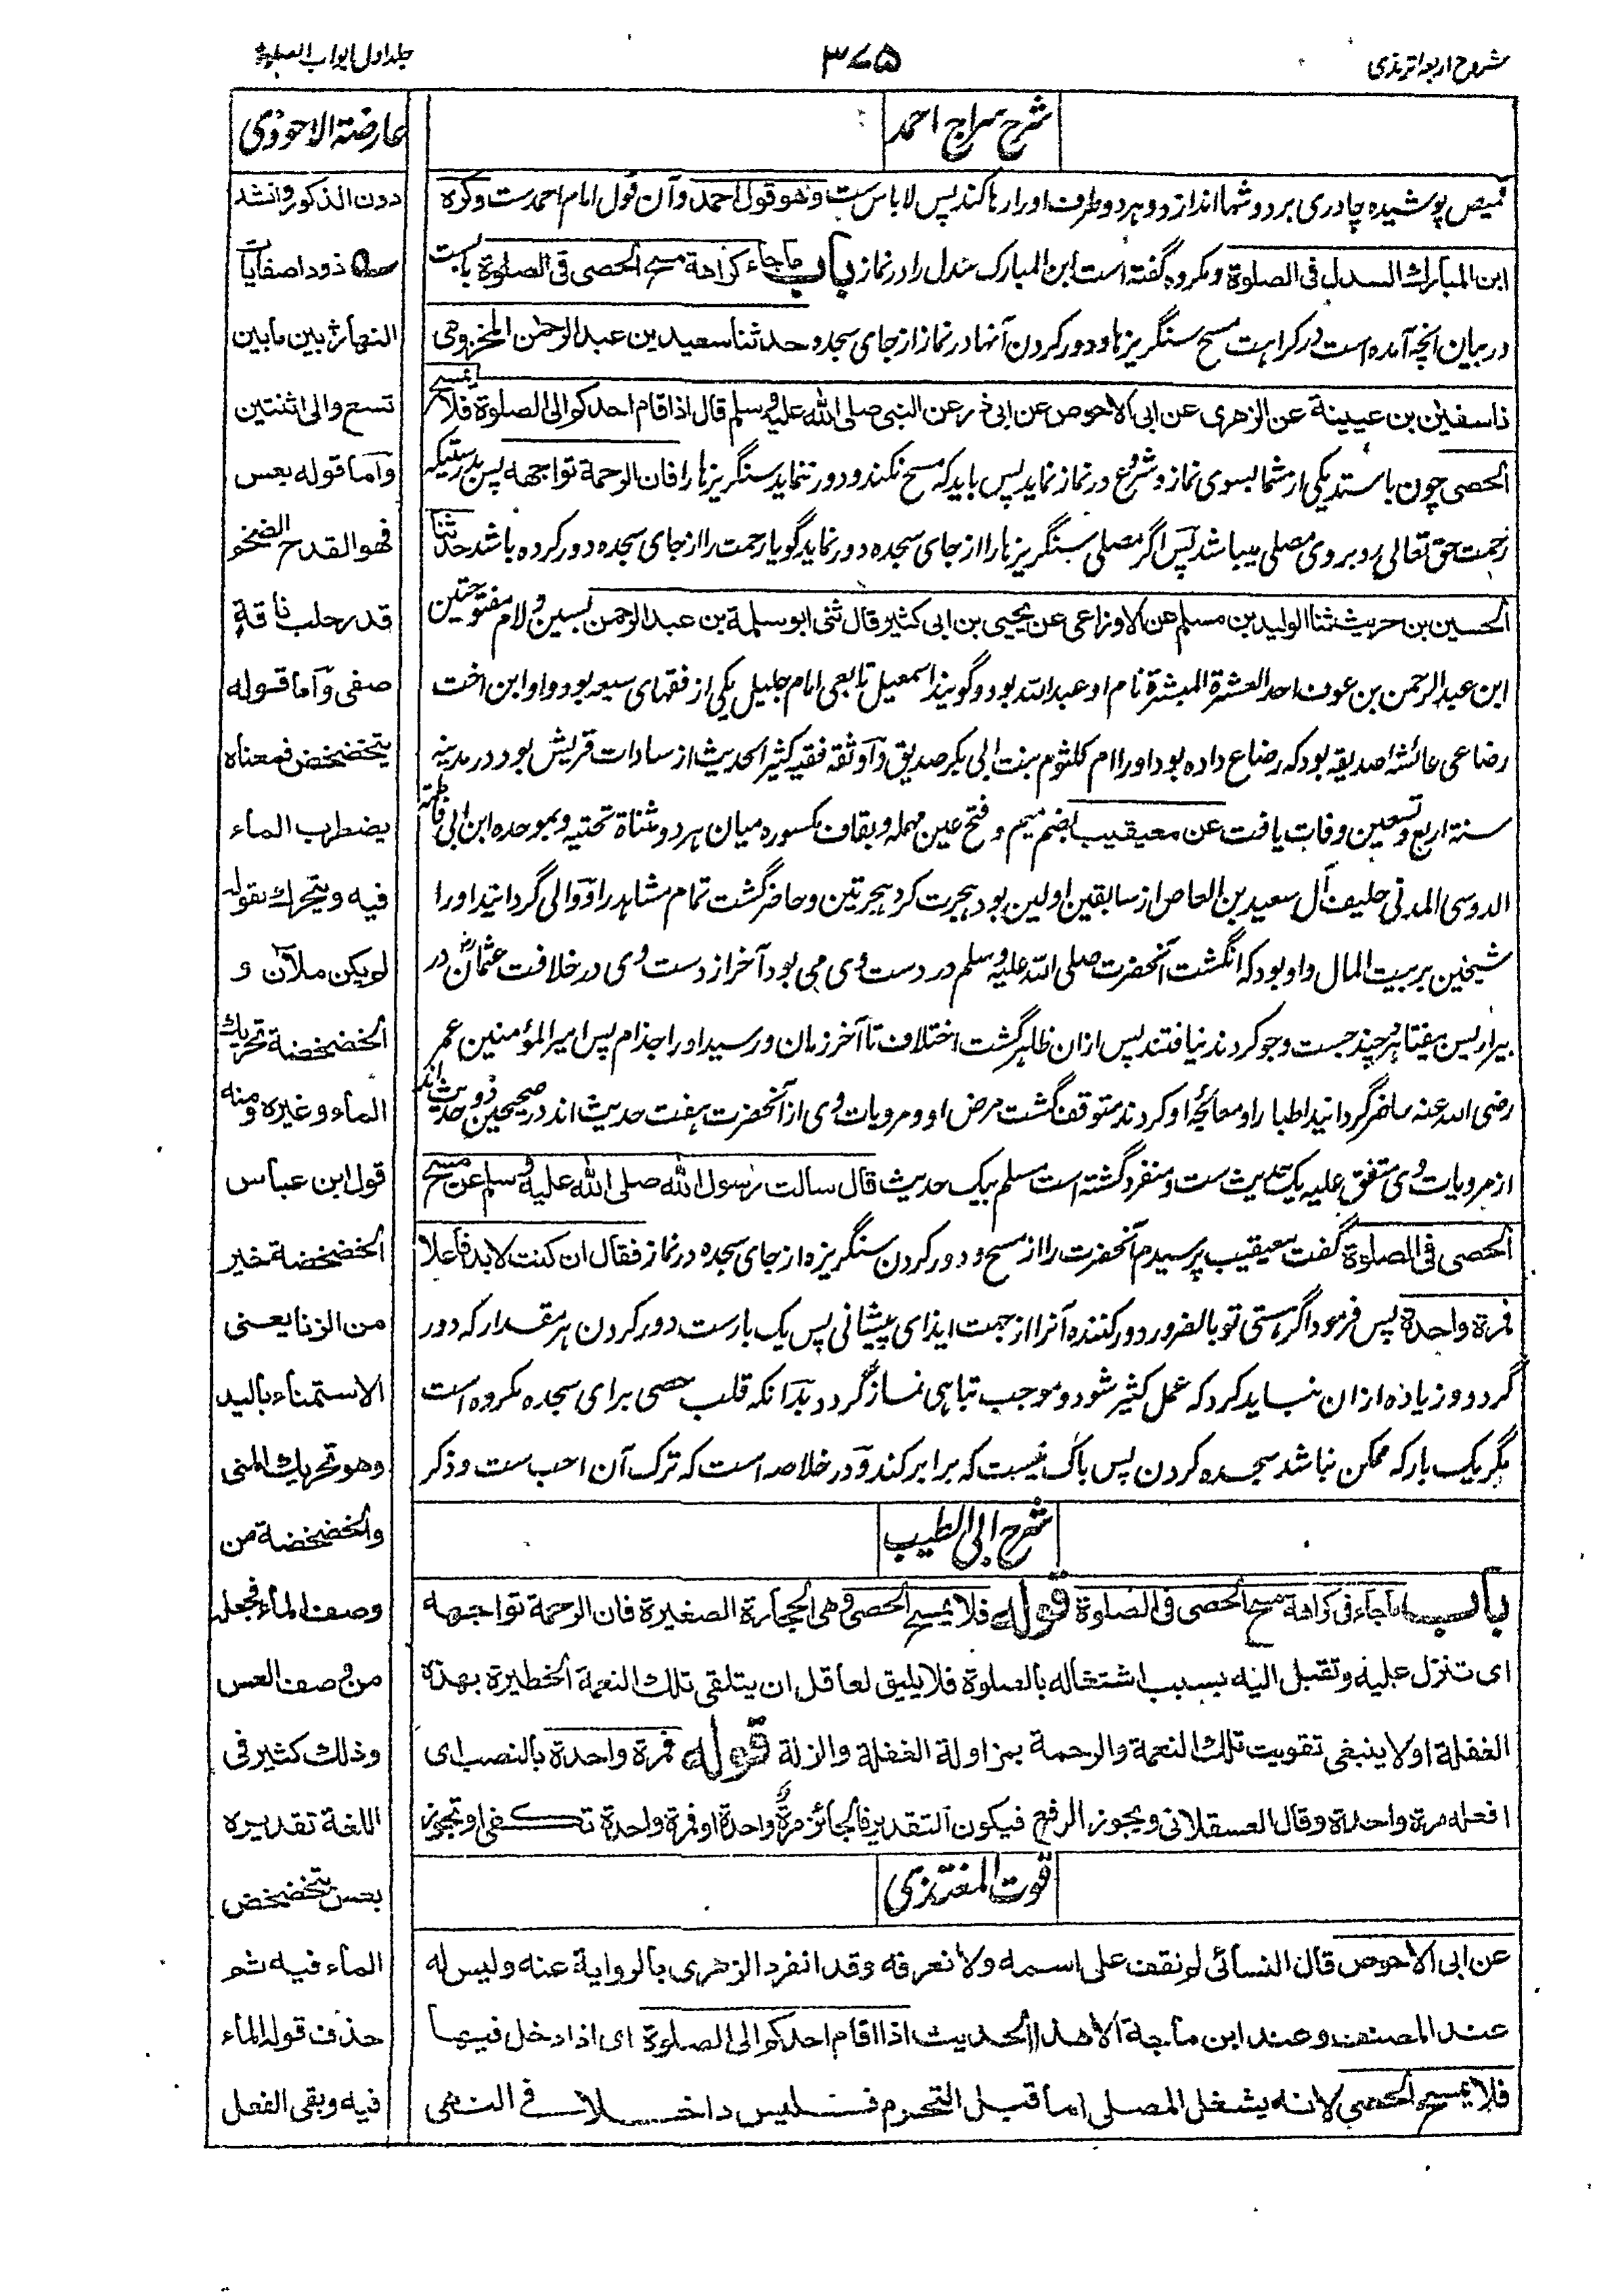 شروح اربعہ ترمذی
۳۷۵
جلد اول ابواب الصلوة
شرح سراج احمد
قمیص پوشیده چادری بر دوشها اندازد و هر دو طرف او را رها کند پس لا باس ست وهو قول احمد وآن قول امام احمدست وكره
ابن المبارك السدل فى الصلوة ومکروه گفته است ابن المبارک سدل را در نماز باب ما جاء كراهة مسح الحصى فى الصلوة بابست
در بیان آنچه آمده است در کراهت مسح سنگریزها و دور کردن آنها در نماز از جای سجده حدثنا سعيد بن عبد الرحمن المخزومى
نا سفين بن عيينة عن الزهرى عن ابى الاحوص عن ابى ذر عن النبى صلى الله عليه وسلم قال اذا قام احدكم الى الصلوة فلا يمسح
الحصى چون باستد یکی از شما بسوی نماز و شروع در نماز نماید پس باید که مسح نکند و دور ننماید سنگریزها را فان الرحمة تواجهه پس بدرستیکه
رحمت حق تعالی رو بروی مصلی میباشد پس اگر مصلی سنگریزها را از جای سجده دور نماید گویا رحمت را از جای سجده دور کرده باشد حدثنا
الحسين بن حريث ثنا الوليد بن مسلم عن الاوزاعى عن يحيى بن ابى كثير قال ثنى ابو سلمة بن عبد الرحمن بسین و لام مفتوحتین
ابن عبد الرحمن بن عوف احد العشرة المبشرة نام او عبد الله بود و گویند اسمعیل تابعی امام جلیل یکی از فقهای سبعه بود و او ابن اخت
رضاعی عائشه صدیقه بود که رضاع داده بود او را ام کلثوم بنت ابی بکر صدیق و او ثقه فقیه کثیر الحدیث از سادات قریش بود در مدینه
سنة اربع وتسعین وفات یافت عن معيقيب بضم میم و فتح عین مهمله و بقاف مکسوره میان هر دو مثناة تحتیه و بموحده ابن ابی فاطمة
الدوسی المدنی حلیف آل سعید بن العاص از سابقین اولین بود هجرت کرد هجرتین و حاضر گشت تمام مشاهد را و والی گردانید او را
شیخین بر بیت المال و او بود که انگشت آنحضرت صلی الله علیه وسلم در دست وی می بود آخر از دست وی در خلافت عثمان رض در
بیر اریس بیفتاد هر چند جست وجو کردند نیافتند پس ازان ظاهر گشت اختلاف تا آخر زمان و رسید او را جذام پس امیر المؤمنین عمر
رضی الله عنه حاضر گردانید اطبا را و معالجه او کردند متوقف گشت مرض او و مرویات وی از آنحضرت هفت حدیث اند در صحیحین دو حدیث اند
از مرویات وی متفق علیه یک حدیث ست و منفرد گشته است مسلم بیک حدیث قال سالت رسول الله صلى الله عليه وسلم عن مسح
الحصى فى الصلوة گفت معیقیب پرسیدم آنحضرت را از مسح و دور کردن سنگریزه از جای سجده در نماز فقال ان كنت لابد فاعلا
فمرة واحدة پس فرمود اگر هستی تو بالضرور دور کننده آنرا از جهت ایذای پیشانی پس یک بارست دور کردن هر مقدار که دور
گردد و زیاده ازان نباید کرد که عمل کثیر شود و موجب تباهی نماز گردد بدانکه قلب حصی برای سجده مکروه است
مگر یک بار که ممکن نباشد سجده کردن پس باک نیست که برابر کند و در خلاصه است که ترک آن احب ست و ذکر
شرح ابى الطيب
باب ما جاء فى كراهة مسح الحصى فى الصلوة قوله فلا يمسح الحصى وهى الحجارة الصغيرة فان الرحمة تواجهه
اى تنزل عليه وتقبل اليه بسبب اشتغاله بالصلوة فلا يليق لعاقل ان يتلقى تلك النعمة الخطيرة بهذه
الغفلة او لا ينبغى تفويت تلك النعمة والرحمة بمزاولة الغفلة والزلة قوله فمرة واحدة بالنصب اى
افعله مرة واحدة وقال العسقلانى ويجوز الرفع فيكون التقدير فالجائز مرة واحدة او فمرة واحدة تكفى او تجوز
قوت المغتذى
عن ابى الاحوص قال النسائى لم نقف على اسمه ولا نعرفه وقد انفرد الزهرى بالرواية عنه وليس له
عند المصنف وعند ابن ماجة الا هذا الحديث اذا قام احدكم الى الصلوة اى اذا دخل فيها
فلا يمسح الحصى لانه يشغل المصلى اما قبل التحرم فليس داخلا فى النهى
عارضة الاحوذى
دون الذكور وانشد
ذود اصفايات
النهاز بين ما بين
تسع والى اثنتين
واما قوله بعس
فهو القدح الضخم
قدر حلب ناقة
صفى واما قوله
يتخضخض فمعناه
يضطرب الماء
فيه ويتحرك بقوله
لم يكن ملآن و
الخضخضة تحريك
الماء وغيره ومنه
قول ابن عباس
الخضخضة خير
من الزنا يعنى
الاستمناء باليد
وهو تحريك المنى
والخضخضة من
وصف الماء فجعله
من وصف العس
وذلك كثير فى
اللغة تقديره
بعس يتخضخض
الماء فيه ثم
حذف قوله الماء
فيه وبقى الفعل